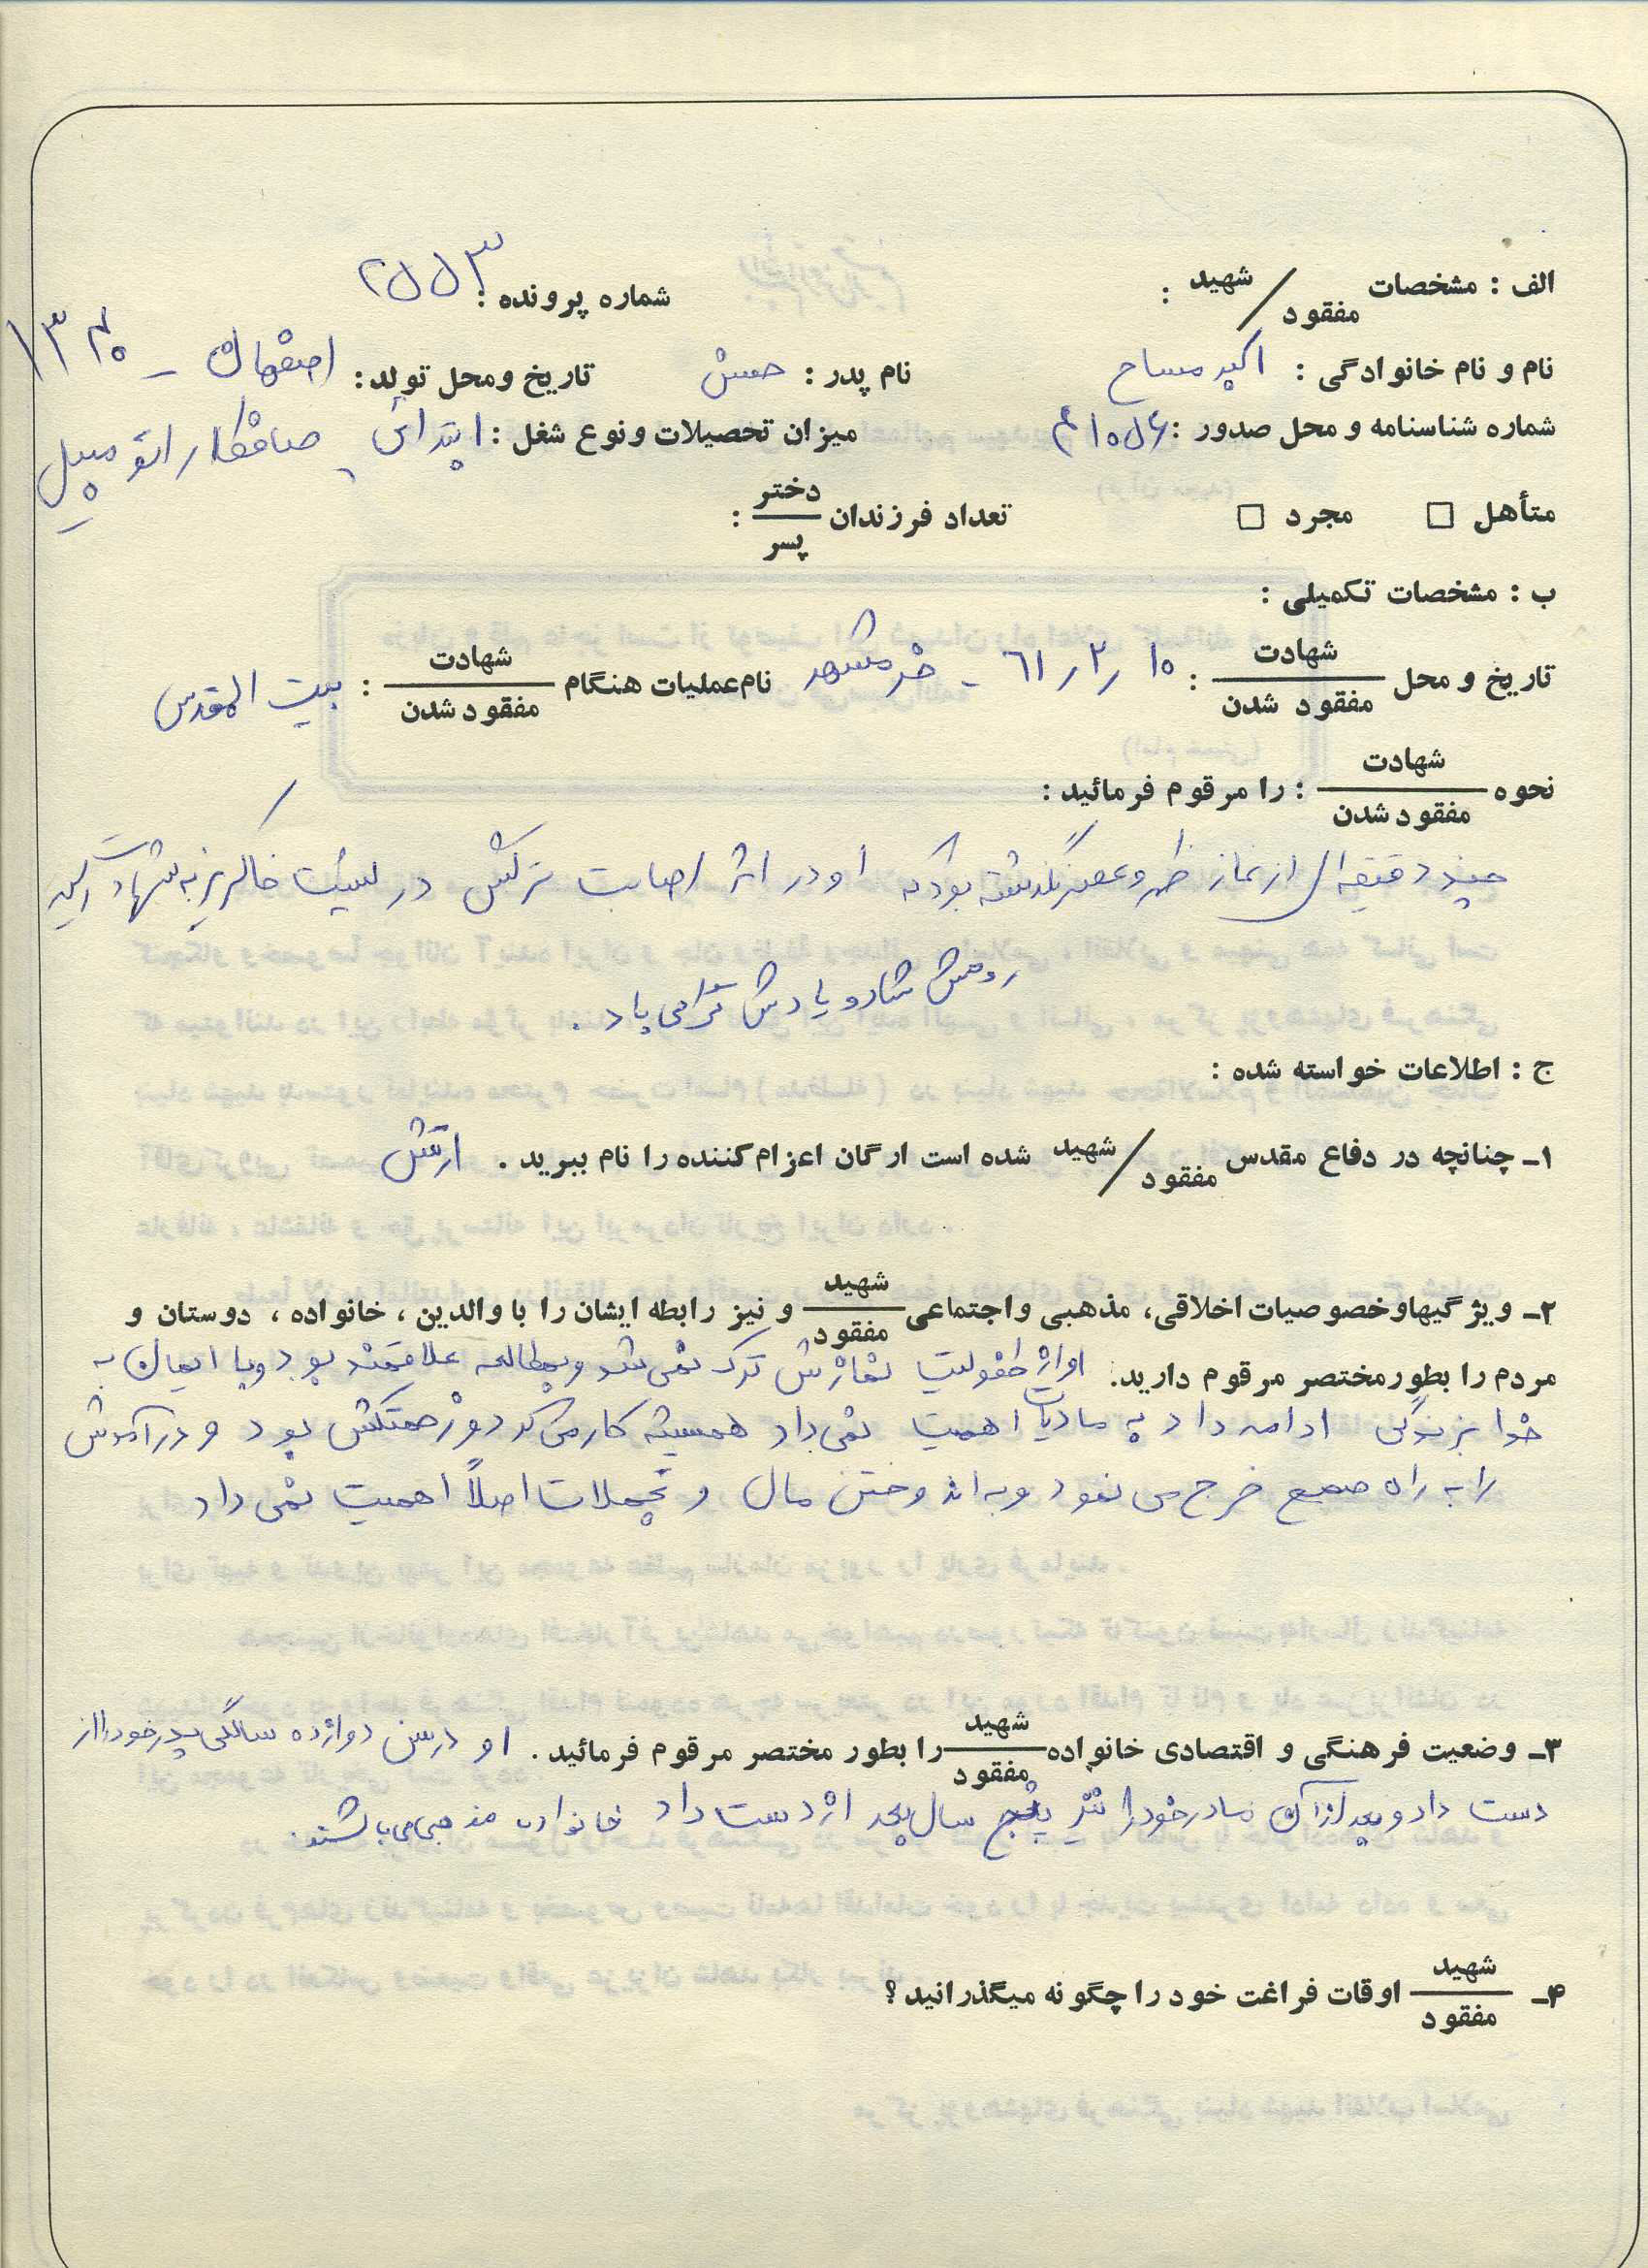 الف : مشخصات شهید / مفقود : شماره پرونده : ۲۵۵۳
نام و نام خانوادگی : اکبر مساح نام پدر : حسن تاریخ ومحل تولد : اصفهان - ۱۳۴۰
شماره شناسنامه و محل صدور : میزان تحصیلات ونوع شغل : ابتدائی صافکار اتومبیل
متأهل □ مجرد □ تعداد فرزندان دختر / پسر :
ب : مشخصات تکمیلی :
تاریخ و محل شهادت / مفقود شدن : ۱۰ ر ۲ ر ۶۱ - خرمشهر نام عملیات هنگام شهادت / مفقود شدن : بیت المقدس
نحوه شهادت / مفقود شدن : را مرقوم فرمائید :
چند دقیقه ای از نماز ظهر و عصر نگذشته بود که او در اثر اصابت ترکش در پشت خاکریز به شهادت رسید
روحش شاد و یادش گرامی باد .
ج : اطلاعات خواسته شده :
۱ـ چنانچه در دفاع مقدس شهید / مفقود شده است ارگان اعزام کننده را نام ببرید . ارتش
۲ـ ویژگیهاوخصوصیات اخلاقی، مذهبی واجتماعی شهید / مفقود و نیز رابطه ایشان را با والدین ، خانواده ، دوستان و
مردم را بطورمختصر مرقوم دارید. او از طفولیت نمازش ترک نمی شد و بمطالعه علاقمند بود و با ایمان به
خدا بزندگی ادامه داد به مادیات اهمیت نمی داد همیشه کار می کرد و زحمتکش بود و درآمدش
را به راه صحیح خرج می نمود و به اندوختن مال و تجملات اصلاً اهمیت نمی داد
۳ـ وضعیت فرهنگی و اقتصادی خانواده شهید / مفقود را بطور مختصر مرقوم فرمائید . او در سن دوازده سالگی پدر خود را از
دست داد و بعد از آن مادر خود را نیز پنج سال بعد از دست داد خانواده مذهبی می باشند .
۴ـ شهید / مفقود اوقات فراغت خود را چگونه میگذرانید ؟